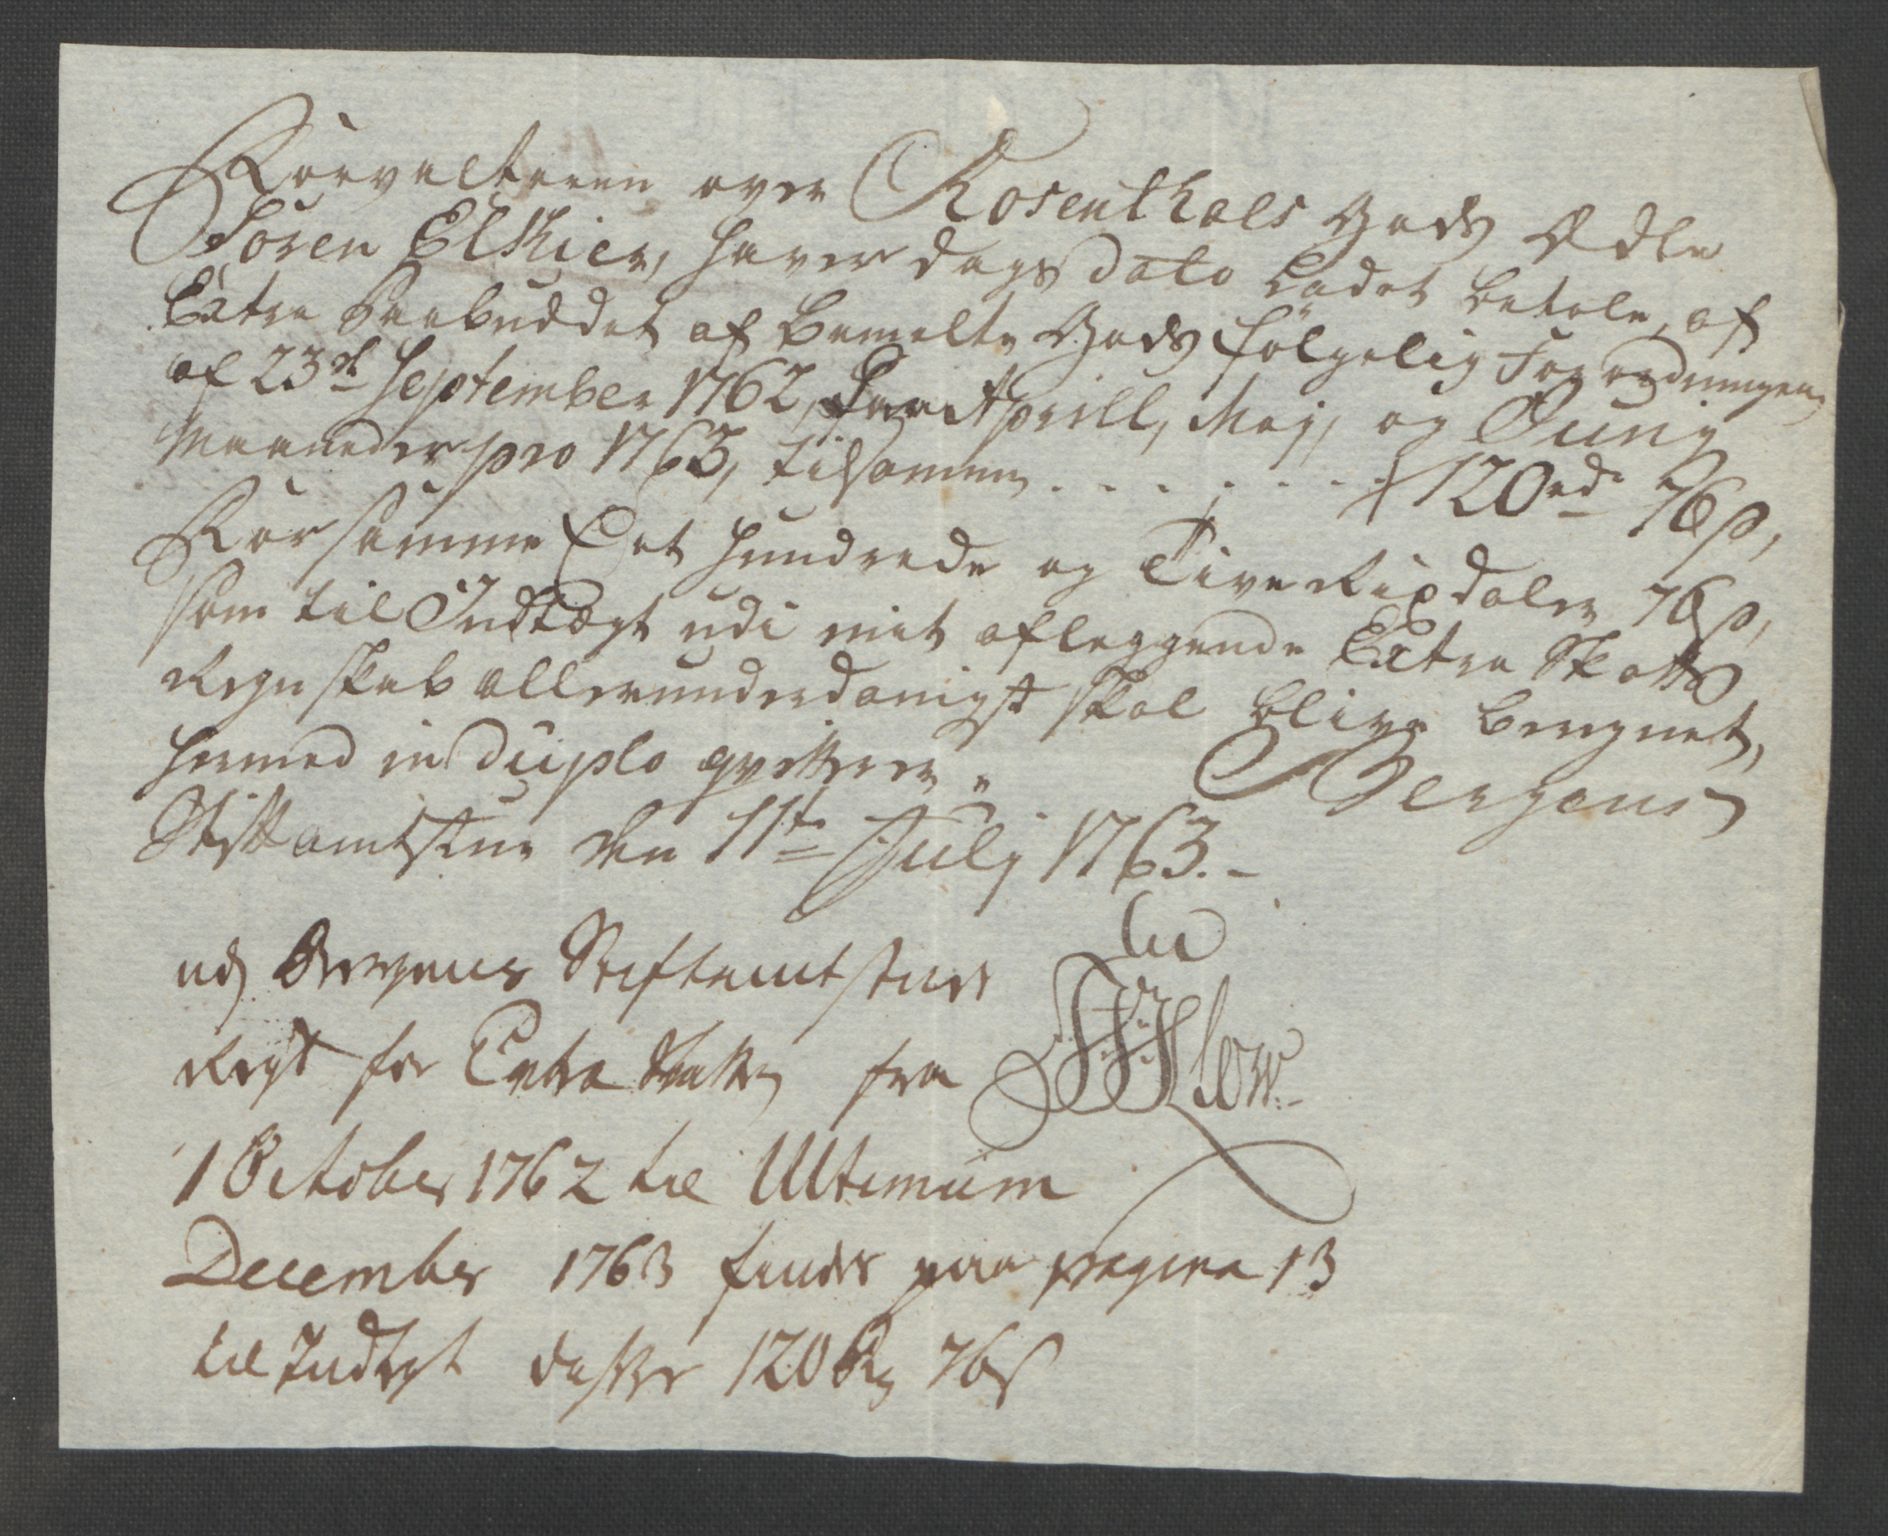 Forvalteren over Rosenthals Gods Ædle
Søren Elkier, haver dags dato ladet betale, af
Extra Paabuddet af bemelte Gods følgelig Forordningen
af 23de September 1762, for Aprill, Maj, og Junij
Maaneder pro 1763, tilsamen . . . . . . . 120 rd. 76 s,
For samme Eet hundrede og Tive Rixdaler 76 s,
som til Indtægt udi mit aflæggende Extra Skatts
Regnskab allerunderdanigst skal blive beregnet,
hermed in duplo qvitterer. Bergens
Stiftamtstue den 11te Julij 1763.
udj Bergens Stiftamtstues
Regsk for Extra Skatten fra
1 October 1762 til Ultimum
December 1763 findes paa pagina 13
til Indtegt disse 120 Rd 76 s